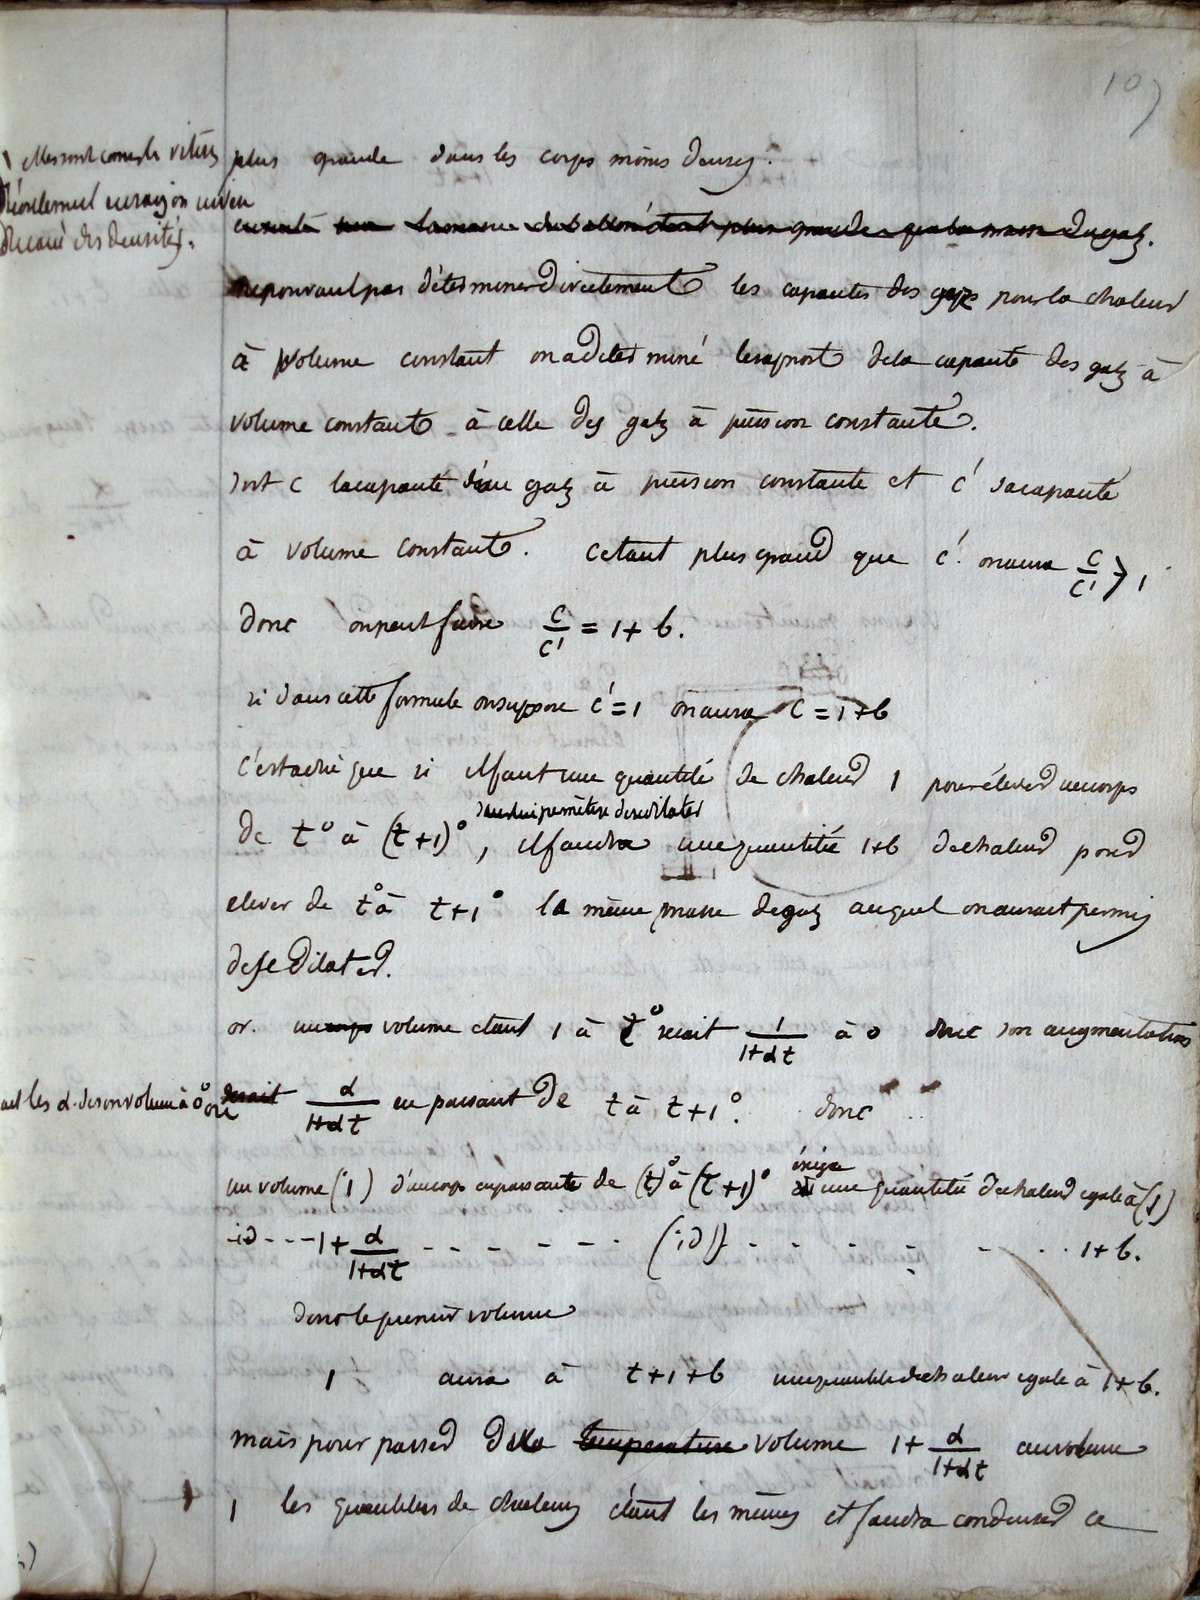 107
elles sont comme les vitesses
plus grande dans les corps moins denses.
en raison inverse
du carré des densités.
la masse du ballon étant plus grande que la masse du gaz.
ne pouvant pas déterminer directement les capacités des gazs pour la chaleur
à volume constant on a déterminé le raport de la capacité des gaz à
volume constant à celle des gaz à pression constante.
soit c la capacité d'un gaz à pression constante et c' sa capacité
à volume constant. c etant plus grand que c' on aura c/c' > 1
donc on peut faire c/c' = 1 + b.
si dans cette formule on suppose c' = 1 on aura c = 1 + b
c'est à dire que si il faut une quantité de chaleur 1 pour élever un corps
sans lui permettre de se dilater
de t° à (t+1)°, il faudra une quantité 1+b de chaleur pour
elever de t° à t+1° la même masse de gaz auquel on aurait permis
de se dilater.
or. un corps volume étant 1 à t° serait 1/1+αt à 0 donc son augmentation
est les α de son volume à 0° ou
serait α/1+αt en passant de t à t+1°. donc
un volume (1) d'un corps en passant de (t)° à (t+1)° exige une quantité de chaleur egale à (1)
id - - - 1 + α/1+αt - - - - - - (id) - - - - - - 1+b.
donc le premier volume
1 aura à t+1+b une quantité de chaleur egale à 1+b.
mais pour passer de la température volume 1 + α/1+αt au volume
1 les quantités de chaleur étant les mêmes il faudra condenser ce